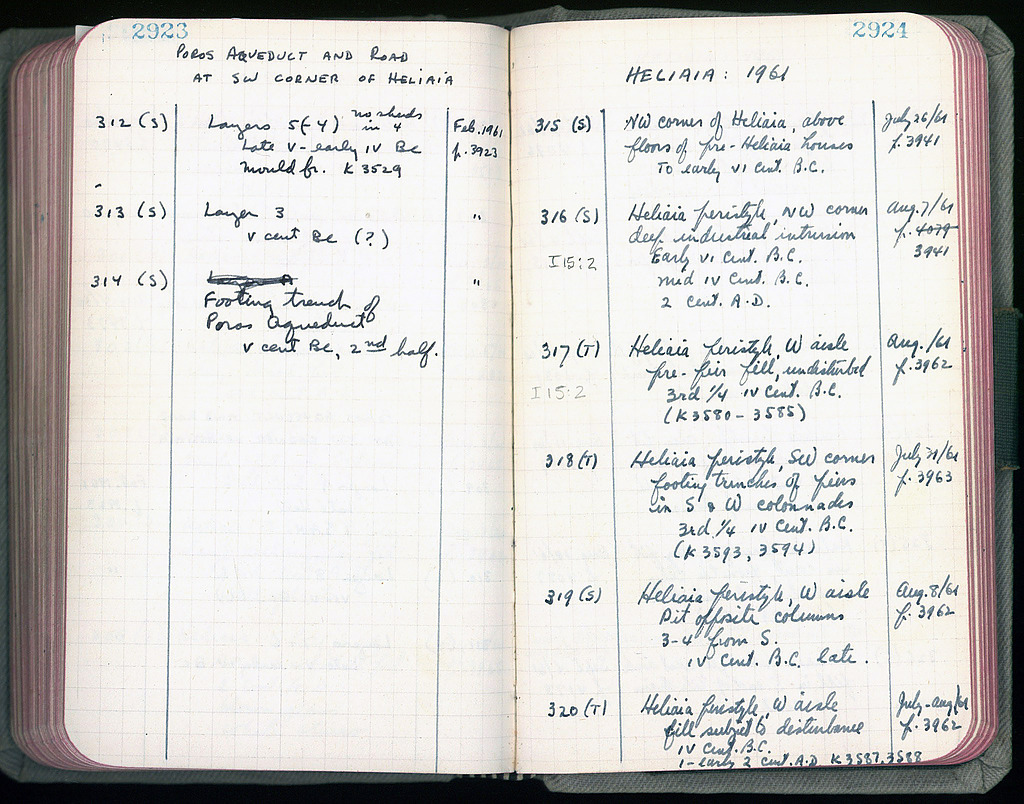 2923
POROS AQUEDUCT AND ROAD
AT SW CORNER OF HELIAIA
312 (S) Layers 5(-4) no sherds in 4 Feb. 1961
Late V - early IV BC p. 3923
mould fr. K 3529
313 (S) Layer 3 "
V cent BC (?)
314 (S) "
Footing trench of
Poros Aqueduct
V cent BC, 2nd half.
2924
HELIAIA: 1961
315 (S) NW corner of Heliaia, above July 26/61
floors of pre-Heliaia houses p. 3941
To early VI cent. B.C.
316 (S) Heliaia peristyle, NW corner Aug. 7/61
deep industrial intrusion p. 4079
I15:2 Early VI cent. B.C. 3941
mid IV cent. B.C.
2 cent. A.D.
317 (T) Heliaia peristyle, W aisle Aug. /61
pre-pier fill, undisturbed p. 3962
I15:2 3rd 1/4 IV cent. B.C.
(K3580 - 3585)
318 (T) Heliaia peristyle, SW corner July 31/61
footing trenches of piers p. 3963
in S & W colonnades
3rd 1/4 IV cent. B.C.
(K3593, 3594)
319 (S) Heliaia peristyle, W aisle Aug. 8/61
Pit opposite columns p. 3962
3-4 from S.
IV cent. B.C. late.
320 (T) Heliaia peristyle, W aisle July-Aug/61
fill subject to disturbance p. 3962
IV cent. B.C.
1-early 2 cent. A.D. K3587, 3588